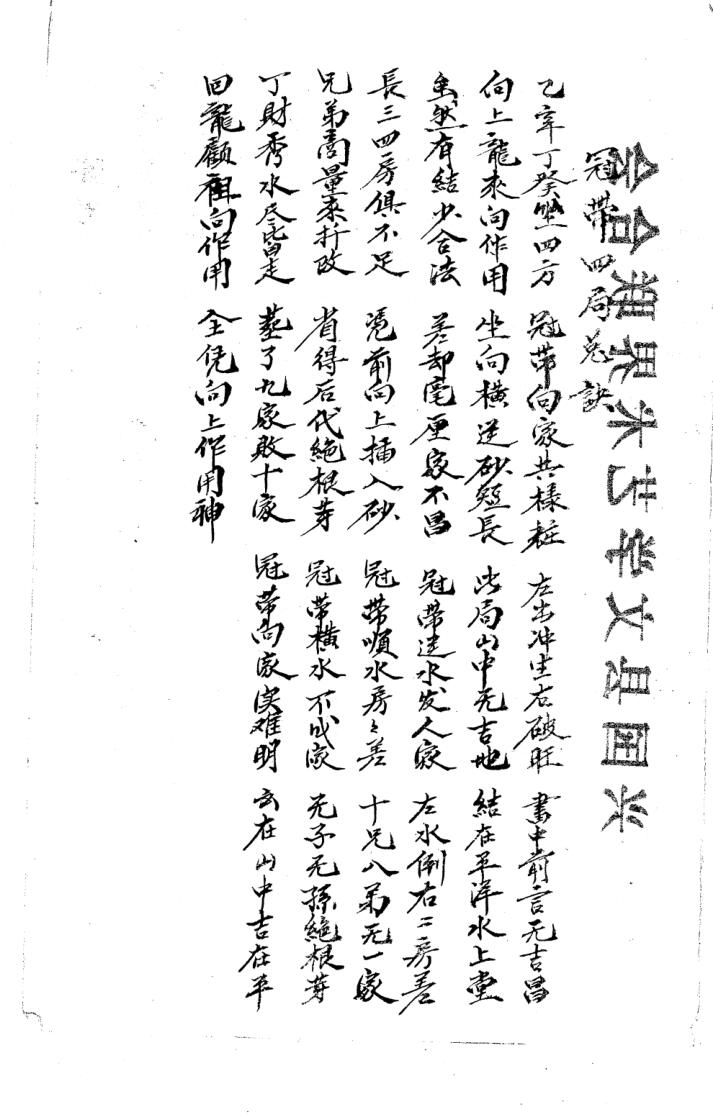 兴国县文学艺术界联合会
冠帶四局总訣
乙辛丁癸坐四方 冠帶向家共樣粧 左出冲生右破旺 書中前言无吉昌
向上龍來向作用 坐向橫逆砂短長 此局山中无吉地 結在平洋水上堂
虽然有結少合法 差却毫厘家不昌 冠帶逆水发人家 左水倒右二房差
長三四房俱不足 凭前向上插入砂 冠帶順水房々差 十兄八弟无一家
兄弟商量來扦改 省得后代絕根芽 冠帶橫水不成家 无子无孫絕根芽
丁財秀水尽皆走 葬了九家敗十家 冠帶向家实难明 在山中吉在平
回龍顧祖向作用 全凭向上作用神